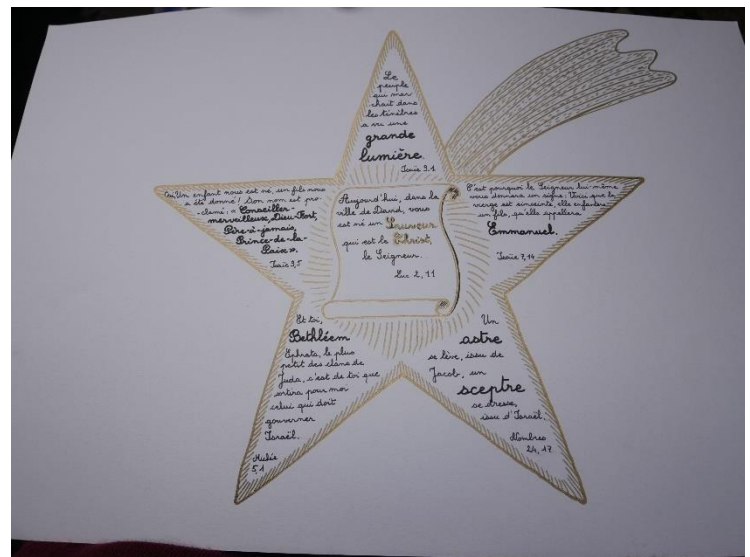 Le
peuple
qui mar
chait dans
les ténèbres
a vu une
grande
lumière.
Isaïe 9,1
Oui, Un enfant nous est né, un fils nous
a été donné ! Son nom est pro-
clamé : « Conseiller-
merveilleux, Dieu-Fort,
Père-à-jamais,
Prince-de-la-
Paix ».
Isaïe 9,5
Aujourd'hui, dans la
ville de David, vous
est né un Sauveur
qui est le Christ,
le Seigneur.
Luc 2, 11
C'est pourquoi le Seigneur lui-même
vous donnera un signe : Voici que la
vierge est enceinte, elle enfantera
un fils, qu'elle appellera
Emmanuel.
Isaïe 7,14
Et toi,
Bethléem
Ephrata, le plus
petit des clans de
Juda, c'est de toi que
sortira pour moi
celui qui doit
gouverner
Israël.
Michée
5,1
Un
astre
se lève, issu de
Jacob, un
sceptre
se dresse,
issu d'Israël.
Nombres
24, 17